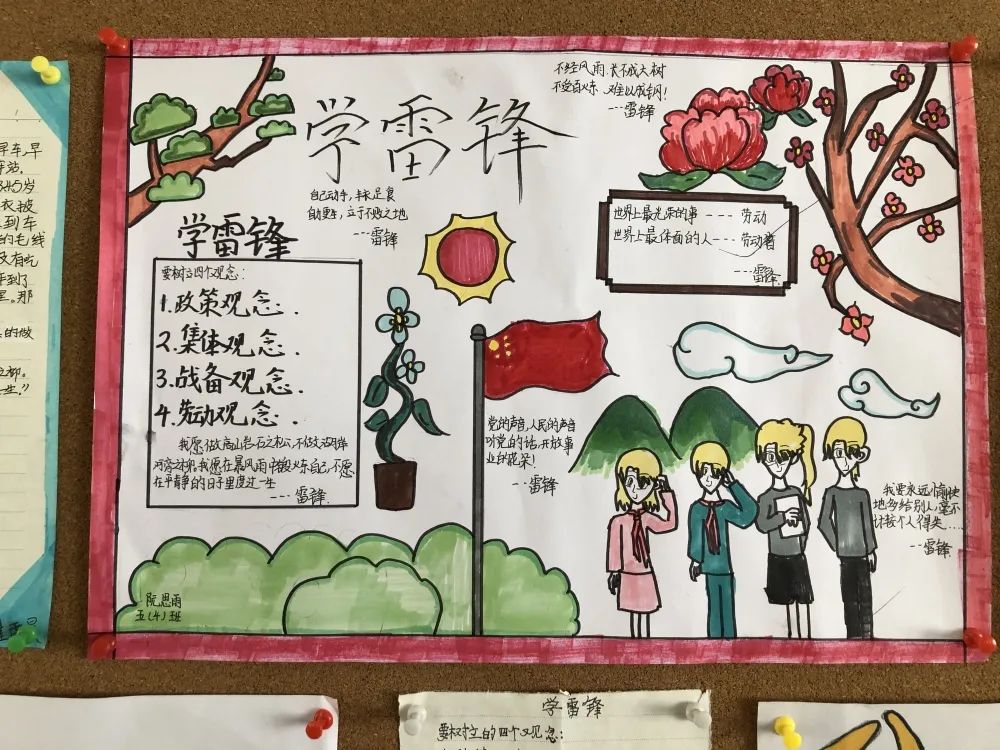 学雷锋
不经风雨、长不成大树
不受百炼、难以成钢!
---雷锋
自己动手,丰衣足食
自更生,立于不败之地
---雷锋
世界上最光荣的事----劳动
世界上最体面的人----劳动者
---雷锋
学雷锋
要树立四个观念:
1.政策观念.
2.集体观念.
3.战备观念.
4.劳动观念.
我愿做高山岩石之松,不做
河旁之柳。我愿在暴风雨中锻火东自己,不愿
在平静的日子里度过一生
---雷锋.
党的声音,人民的声音
听党的话,开放事
业的花朵!
--雷锋
我要永远愉快
地多给别人,毫不
计较个人得失....
--雷锋
阮思雨
五(4)班
早车,早
345岁
衣披
到车
的毛线
没有吃
手到了
里。那
的做
一生."
学雷锋
要树立的四个观念: